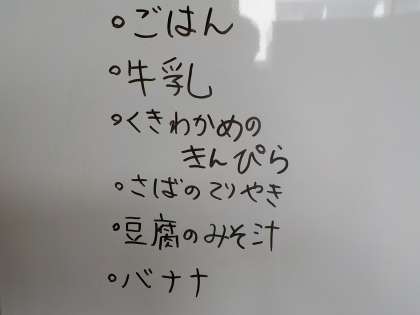 ○ごはん
○牛乳
○くきわかめの
きんぴら
○さばのてりやき
○豆腐のみそ汁
○バナナ